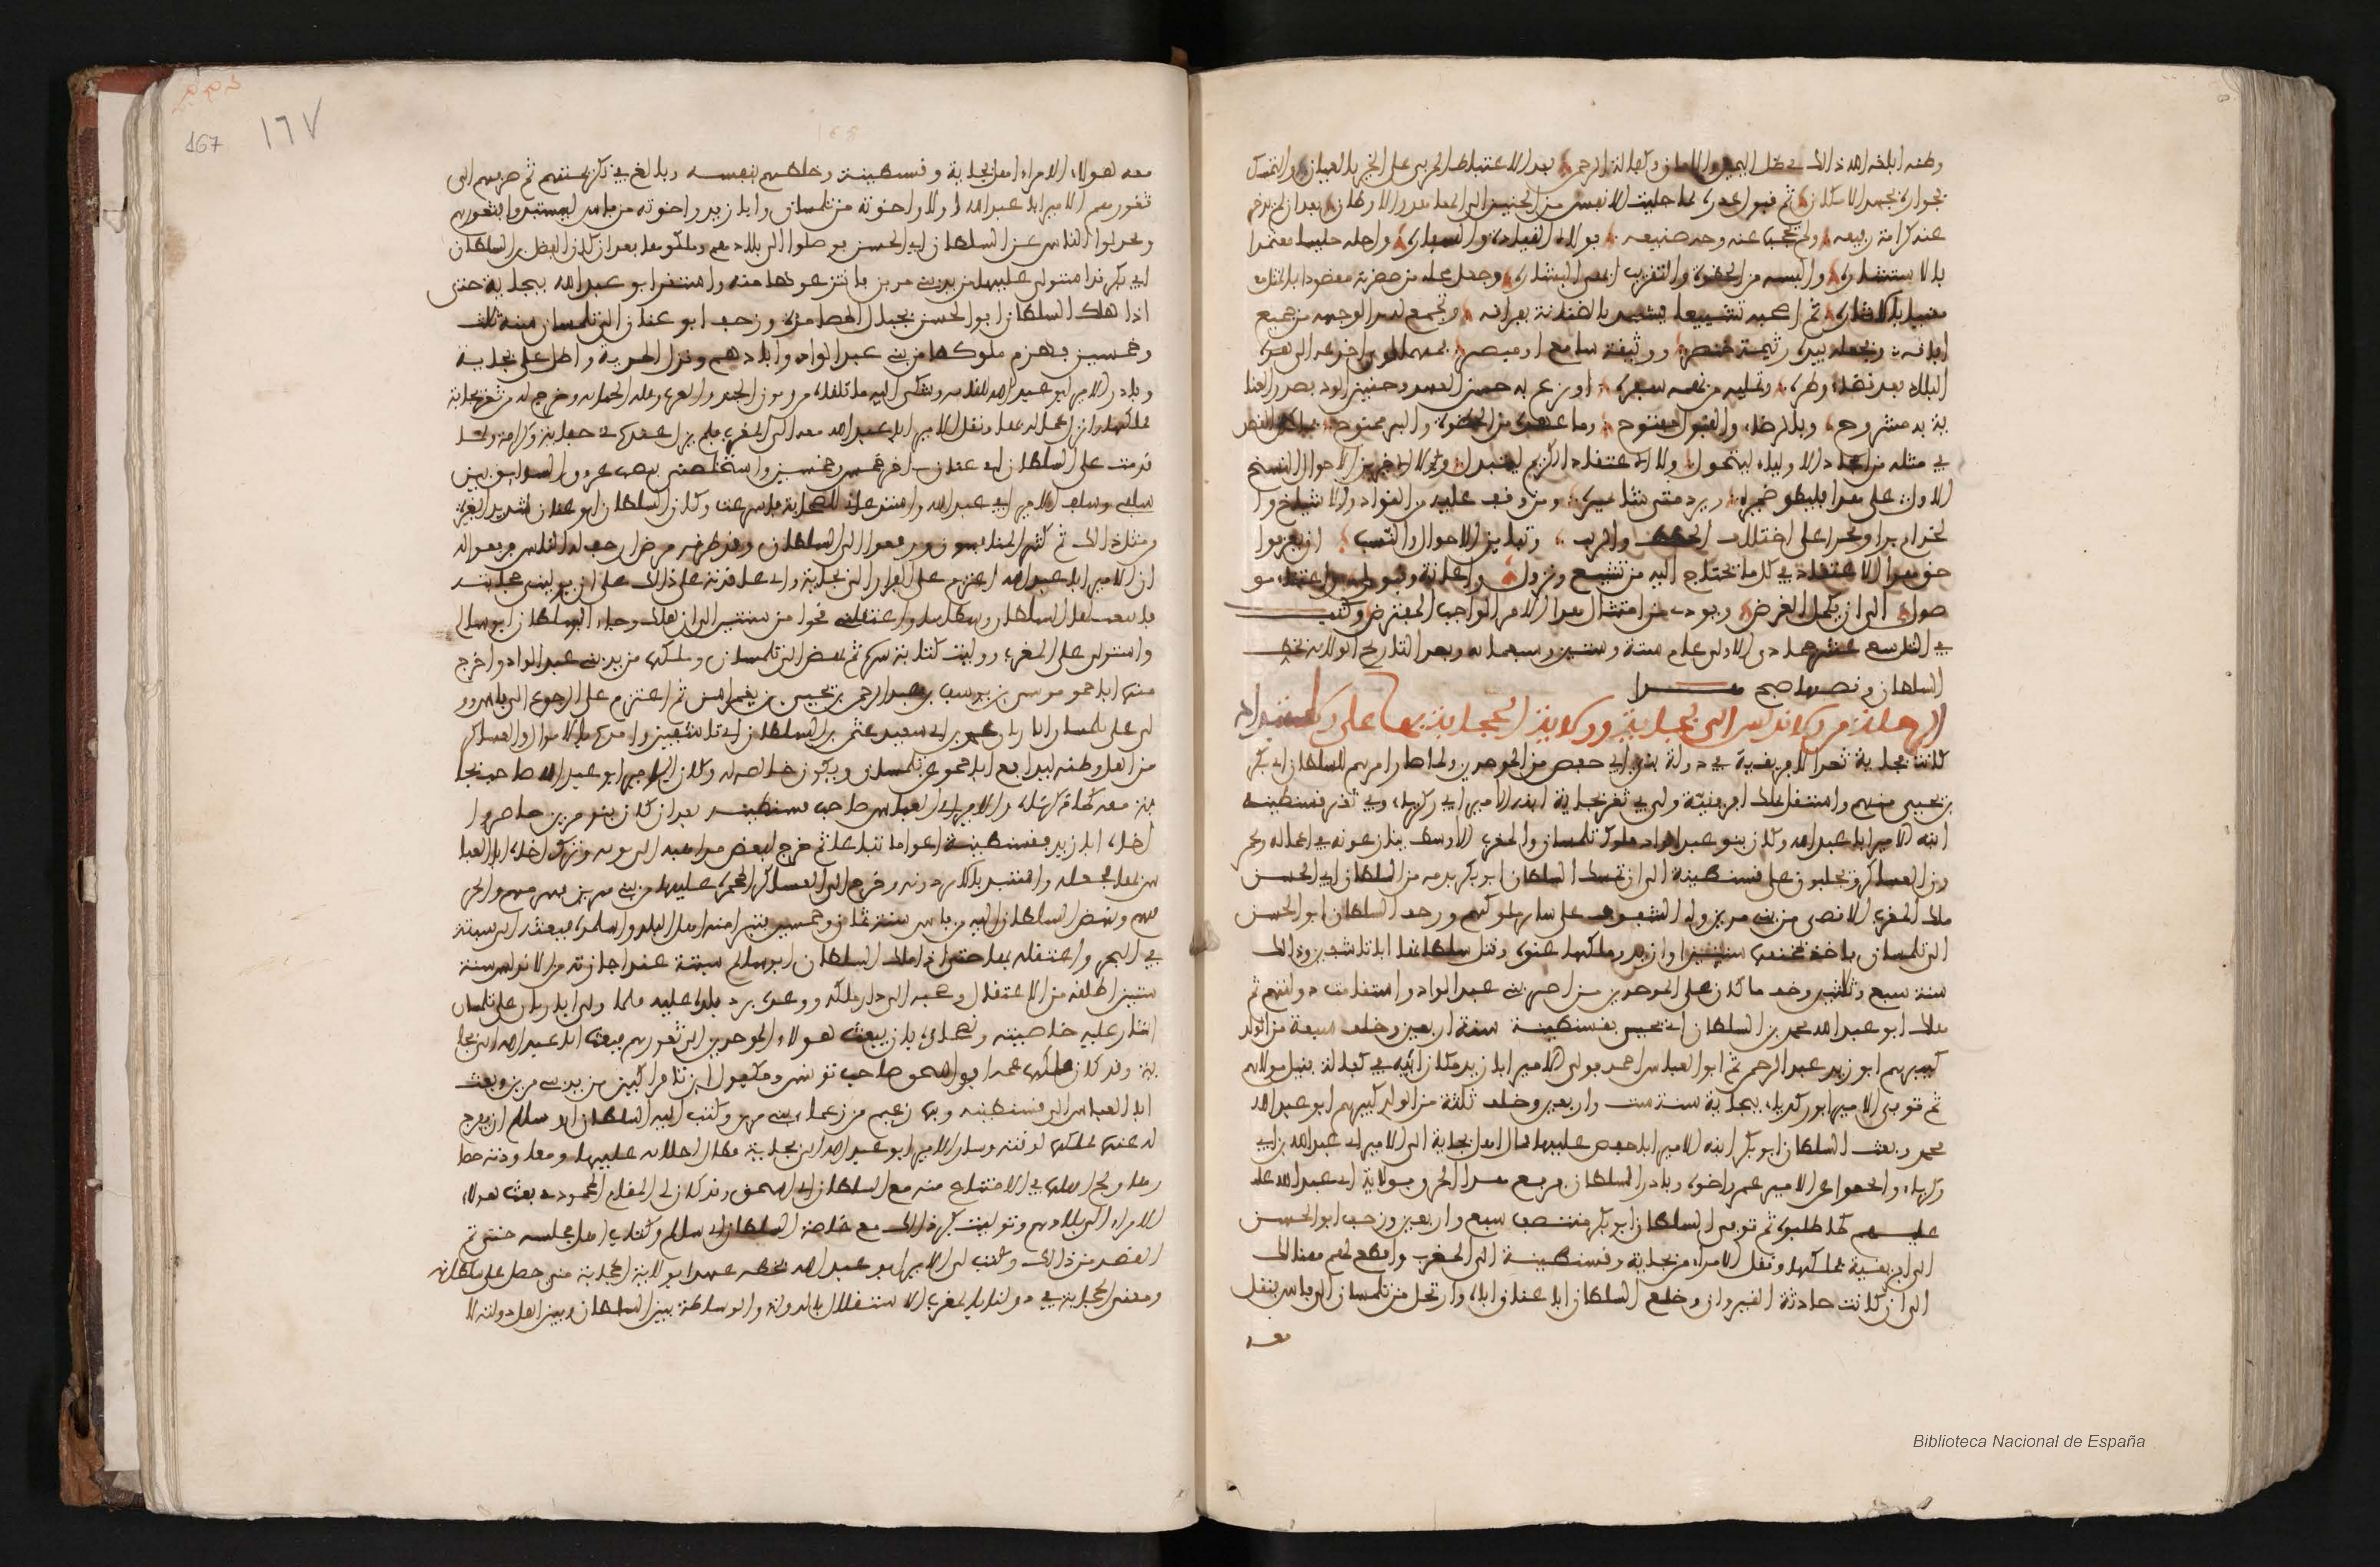 وطنه ابلغه الله ذلك في ظل اليمن والامان وكفالة الرحمن بعد الاغتباط المربي على الخبر بالعيان والتمسك
بجواره بجهد الامكان ثم قبول عذره بما جبلت الانفس من الحنين الى المعاهد والاوطان بعد ان لم يدخر
عنه كرامة رفيعه ولم يحجب عنه وجه صنيعه فولاه القيادة والسفارة واحله جليسا معتمدا
بالاستشاره والبسه من الحظوة والتقريب
ثم اصحبه تشييعا يشهد بالضنانة بفراقه ويجمع له بر الوجهة من جميع
افاقه ويجعله بيده رتيمة خنصر ووثيقة سامع او مبصر فمهما لوى اخدعه الى هذه
البلاد بعد قضاء وطره وتمليه من نهمة سفره او نزع به حسن العهد وحنين الود فصدر العنا
ية به مشروح وباب الرضا والقبول مفتوح وما عهده من الحظوة والبر ممنوح فما كان القصد
في مثله من امجاد الاولياء ليتحول ولا الاعتقاد الكريم ليتبدل ولا الاخير من الاحوال لينسخ
الاول على هذا فليطو ضميره وليرد متى شاء نميره ومن وقف عليه من القواد والاشياخ وا
لخدام برا وبحرا على اختلاف الخطط والرتب وتباين الاحوال والنسب ان يعرفوا
حق هذا الاعتقاد في كل ما يحتاج اليه من تشييع ونزول واعانة وقبول واعتناء مو
صول الى ان يكمل الغرض ويودى من امتثال هذا الامر الواجب المفترض وكتب
في التاسع عشر جمادى الاولى عام ستة وستين وسبعماية وبعد التاريخ العلامة بخط
السلطان ونصها صح هذا
الرحلة من الاندلس الى بجاية وولاية الحجابة بها على الاستبداد
كانت بجاية ثغرا لافريقية في دولة بني ابي حفص من الموحدين ولما صار امرهم للسلطان ابي بكر
بن يحيى منهم واستقل بملك افريقية ولى في ثغر بجاية ابنه الامير ابا زكرياء وفي ثغر قسنطينة
ابنه الامير ابا عبد الله وكان بنو عبد الواد ملوك تلمسان والمغرب الاوسط ينازعونه في اعماله ويجمر
ون العساكر ويجلبون على قسنطينة الى ان تمسك السلطان ابو بكر بذمة من السلطان ابي الحسن
ملك المغرب الاقصى من بني مرين وله الشفوف على ساير ملوكهم وزحف السلطان ابو الحسن
الى تلمسان فاخذ بمخنقها سنتين او ازيد وملكها عنوة وقتل سلطانها ابا تاشفين وذلك
سنة سبع وثلثين وخف ما كان على الموحدين من اصر بني عبد الواد واستقامت دولتهم ثم
هلك ابو عبد الله محمد بن السلطان ابي يحيى بقسنطينة سنة اربعين وخلف سبعة من الولد
كبيرهم ابو زيد عبد الرحمن ثم ابو العباس احمد فولى الامير ابا زيد مكان ابيه في كفالة نبيل مولاهم
ثم توفي الامير ابو زكرياء ببجاية سنة ست واربعين وخلف ثلثة من الولد كبيرهم ابو عبد الله
محمد وبعث السلطان ابو بكر ابنه الامير ابا حفص عليها فمال اهل بجاية الى الامير ابي عبد الله بن ابي
زكرياء وانحرفوا عن الامير عمر واخرجوه وبادر السلطان فرقع هذا الخرق بولاية ابي عبد الله
عليهم كما طلبوه ثم توفي السلطان ابو بكر منتصف سبع واربعين وزحف ابو الحسن
الى افريقية فملكها ونقل الامراء من بجاية وقسنطينة الى المغرب واقطع لهم هنالك
الى ان كانت حادثة القيروان وخلع السلطان ابا عنان اباه وارتحل من تلمسان الى فاس فنقل
معه
167 ١٦٧
معه هولاء الامراء اهل بجاية وقسنطينة وخلطهم بنفسه وبالغ في تكرمتهم ثم صرفهم الى
ثغورهم الامير ابا عبد الله اولا واخوته من تلمسان وابا زيد واخوته من فاس ليستبدوا بثغورهم
ويخذلوا الناس عن السلطان ابي الحسن فوصلوا الى بلادهم وملكوها بعد ان كان الفضل بن السلطان
ابي بكر قد استولى عليها من يد بني مرين فانتزعوها منه واستقر ابو عبد الله ببجاية حتى
اذا هلك السلطان ابو الحسن بجبال المصامدة وزحف ابو عنان الى تلمسان سنة ثلث
وخمسين فهزم ملوكها من بني عبد الواد وابادهم ونزل المرية واطل على بجاية
وبادر الامير ابو عبد الله للقايه وشكى اليه ما يلقاه من زبون الجند والعرب وقلة الجباية وخرج له عن ثغر بجاية
فملكها وانزل عماله بها ونقل الامير ابا عبد الله معه الى المغرب فلم يزل عنده في حفاية وكرامة ولما
قدمت على السلطان ابي عنان اخر خمس وخمسين واستخلصني نبضت عروق السوابق بين
سلفي وسلف الامير ابي عبد الله واستدعاني للصحابة فاسرعت وكان السلطان ابو عنان شديد الغيرة
من مثل ذلك ثم كثر المنافسون ورفعوا الى السلطان وقد طرقه مرض ارجف له الناس فرفعوا له
ان الامير ابا عبد الله اعتزم على الفرار الى بجاية واني عاقدته على ذلك على ان يوليني حجابته
فانبعث لها السلطان وسطا بنا واعتقلني نحوا من سنتين الى ان هلك وجاء السلطان ابو سالم
واستولى على المغرب ووليت كتابة سره ثم نهض الى تلمسان وملكها من يد بني عبد الواد واخرج
منها ابا حمو موسى بن يوسف بن عبد الرحمن بن يحيى بن يغمراسن ثم اعتزم على الرجوع الى فاس وو
لى على تلمسان ابا زيان محمد بن ابي سعيد عثمن بن السلطان ابي تاشفين وامده بالاموال والعساكر
من اهل وطنه ليدافع ابا حمو عن تلمسان ويكون خالصة له وكان الامير ابو عبد الله صاحب بجا
ية معه كما ذكرناه والامير ابو العباس صاحب قسنطينة بعد ان كان بنو مرين حاصروا
اخاه ابا زيد بقسنطينة اعواما تباعا ثم خرج لبعض مذاهبه الى بونه وترك اخاه ابا العبا
س بها فخلعه واستبد بالامر دونه وخرج الى العساكر المجمرة عليها من بني مرين فهزمهم واثخن
فيهم ونهض السلطان اليه من فاس سنة ثمان وخمسين فتبرا منه اهل البلد واسلموه فبعثه الى سبتة
في البحر واعتقله بها حتى اذا ملك السلطان ابو سالم سبتة عند اجازته من الاندلس سنة
ستين اطلقه من الاعتقال وصحبه الى دار ملكه ووعده برد بلده عليه فلما ولى ابا زيان على تلمسان
اشار عليه خاصته ونصحاوه بان يبعث هولاء الموحدين الى ثغورهم فبعث ابا عبد الله الى بجا
ية وقد كان ملكها عمه ابو اسحق صاحب تونس ومكفول ابن تافراكين من يد بني مرين وبعث
ابا العباس الى قسنطينة وبها زعيم من زعماء بني مرين وكتب اليه السلطان ابو سالم ان يفرج
له عنها فملكها لوقته وسار الامير ابو عبد الله الى بجاية فطال اجلابه عليها ومعاودته حصا
رها ولج اهلها في الامتناع منه مع السلطان ابي اسحق وقد كان لي المقام المحمود في بعث هولاء
الامراء الى بلادهم وتوليت كبر ذلك مع خاصة السلطان ابي سالم وكتاب اهل مجلسه حتى تم
القصد من ذلك وكتب لي الامير ابو عبد الله بخطه عهدا بولاية الحجابة متى حصل على سلطانه
ومعنى الحجابة في دولنا بالمغرب الاستقلال بالدولة والوساطة بين السلطان وبين اهل دولته لا
Biblioteca Nacional de España